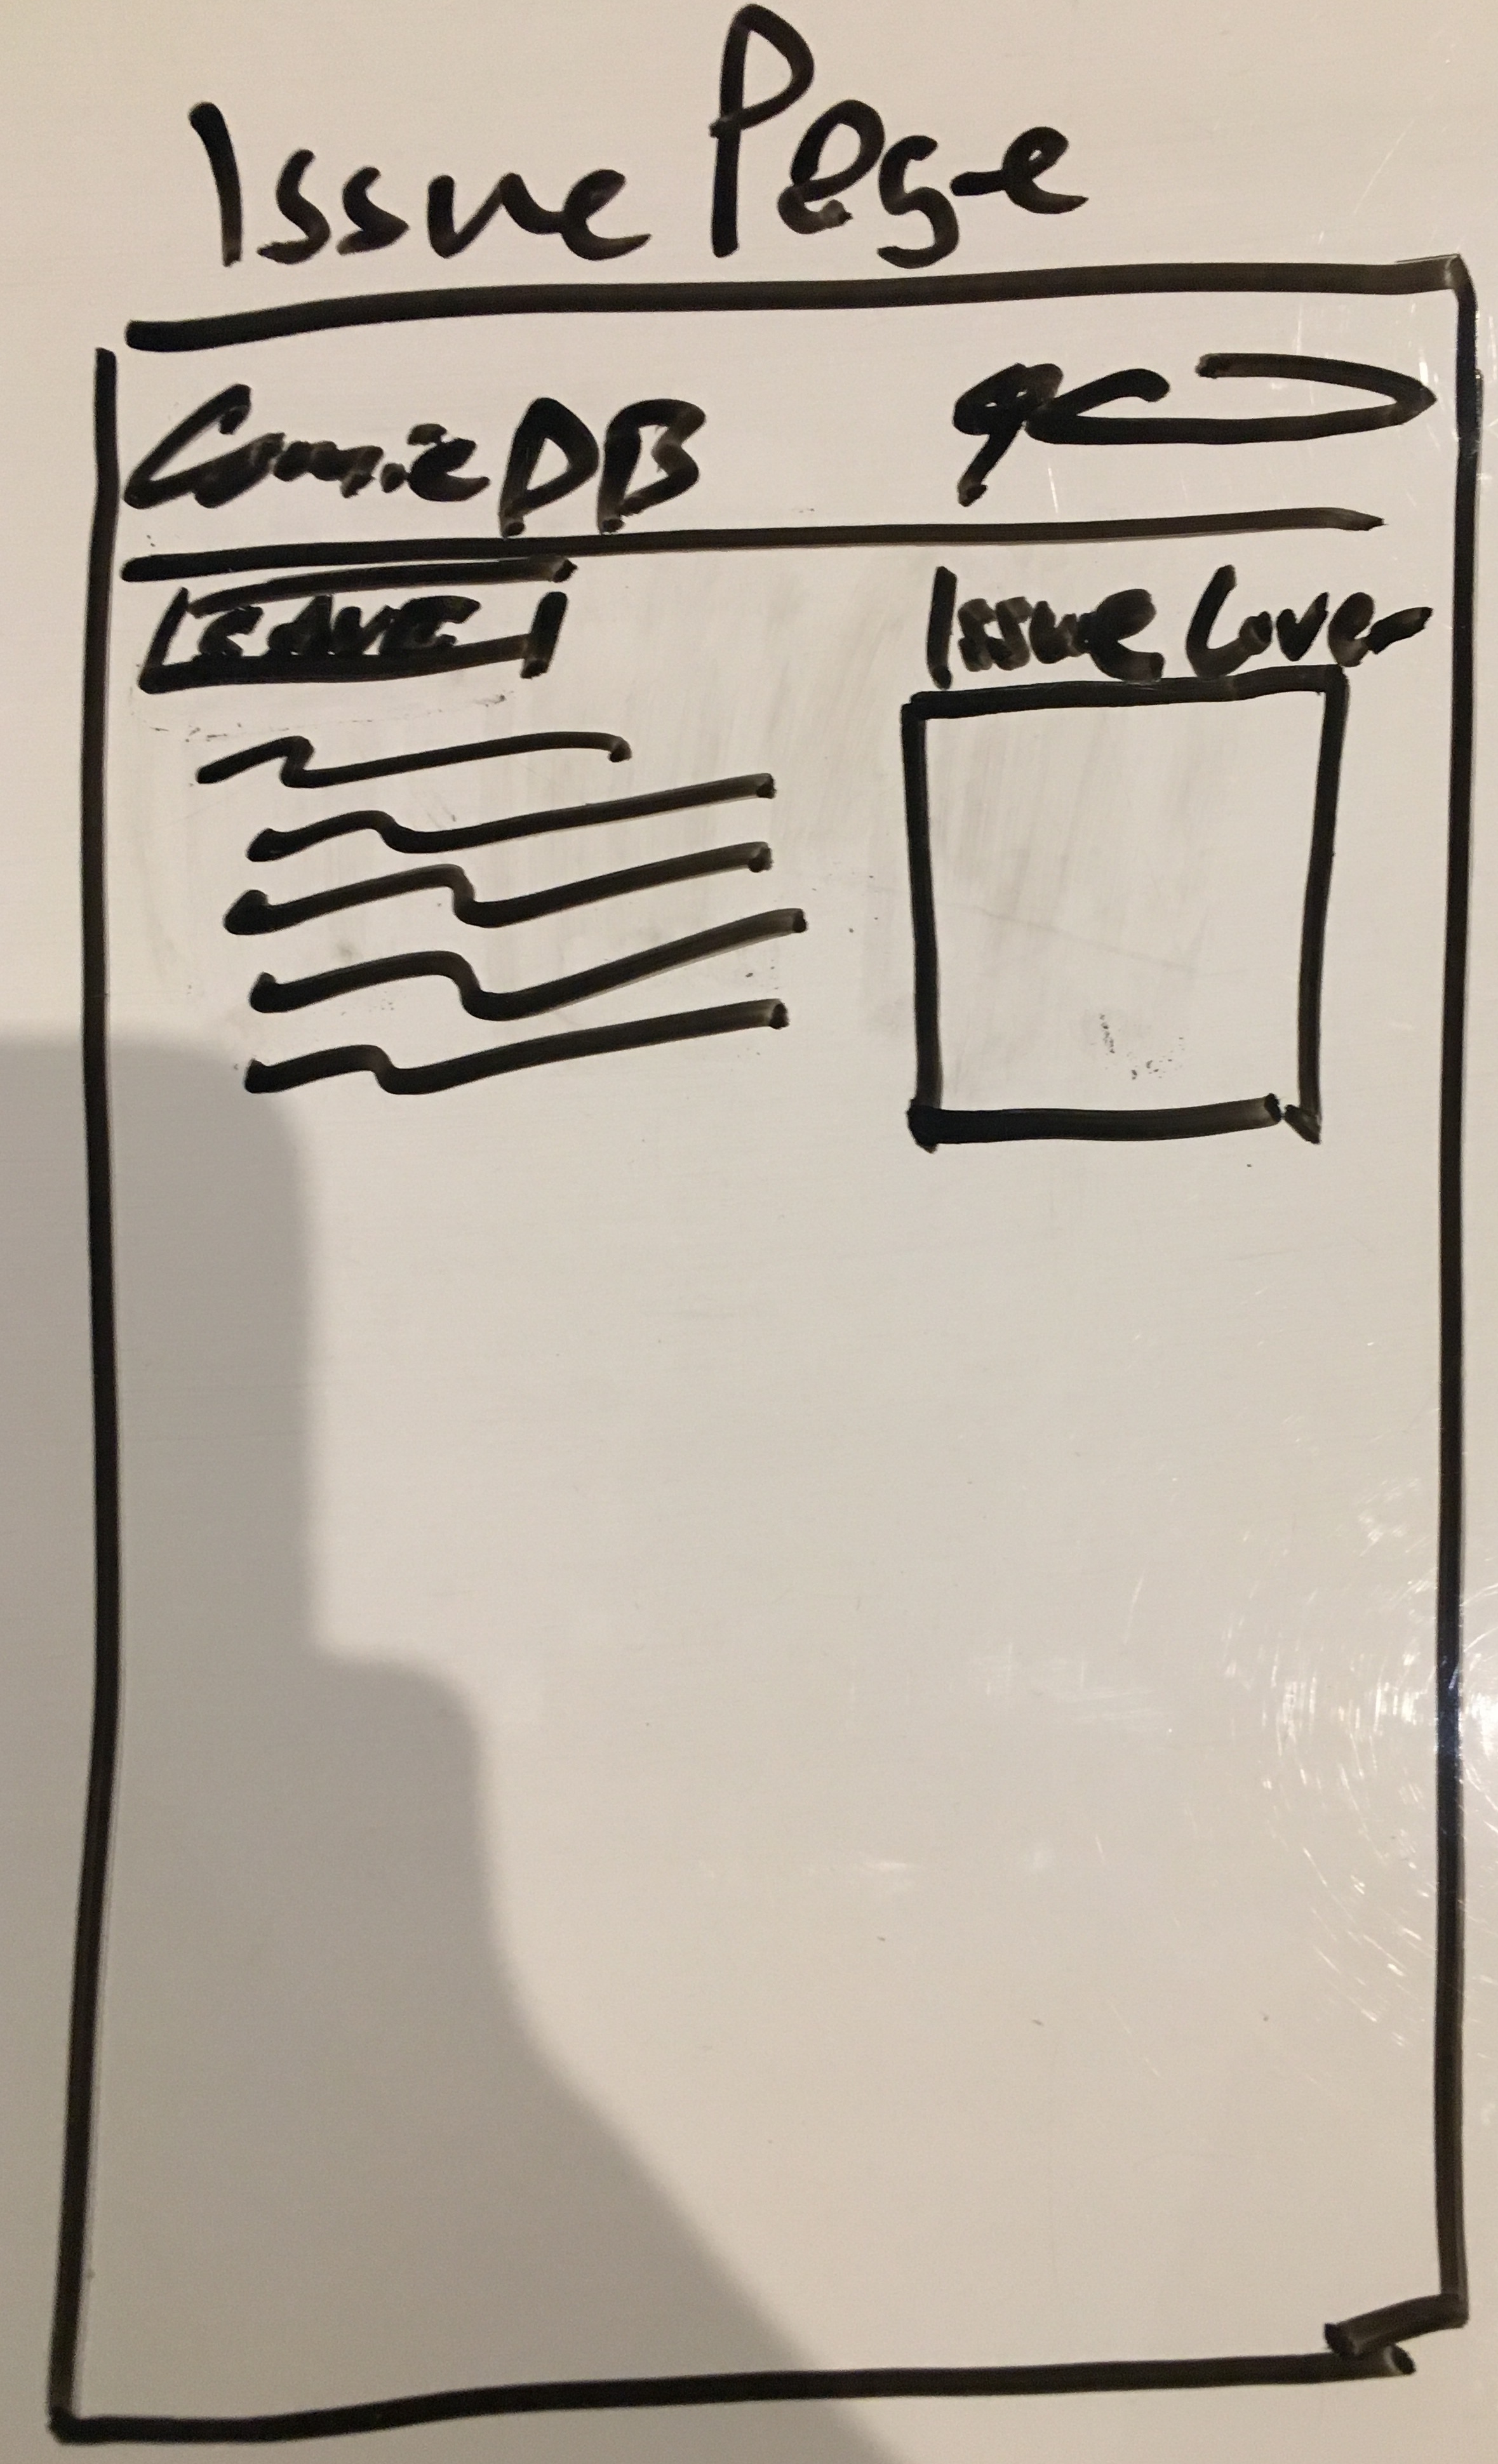 Issue Page
Comic DB
Issue 1
Issue Cover